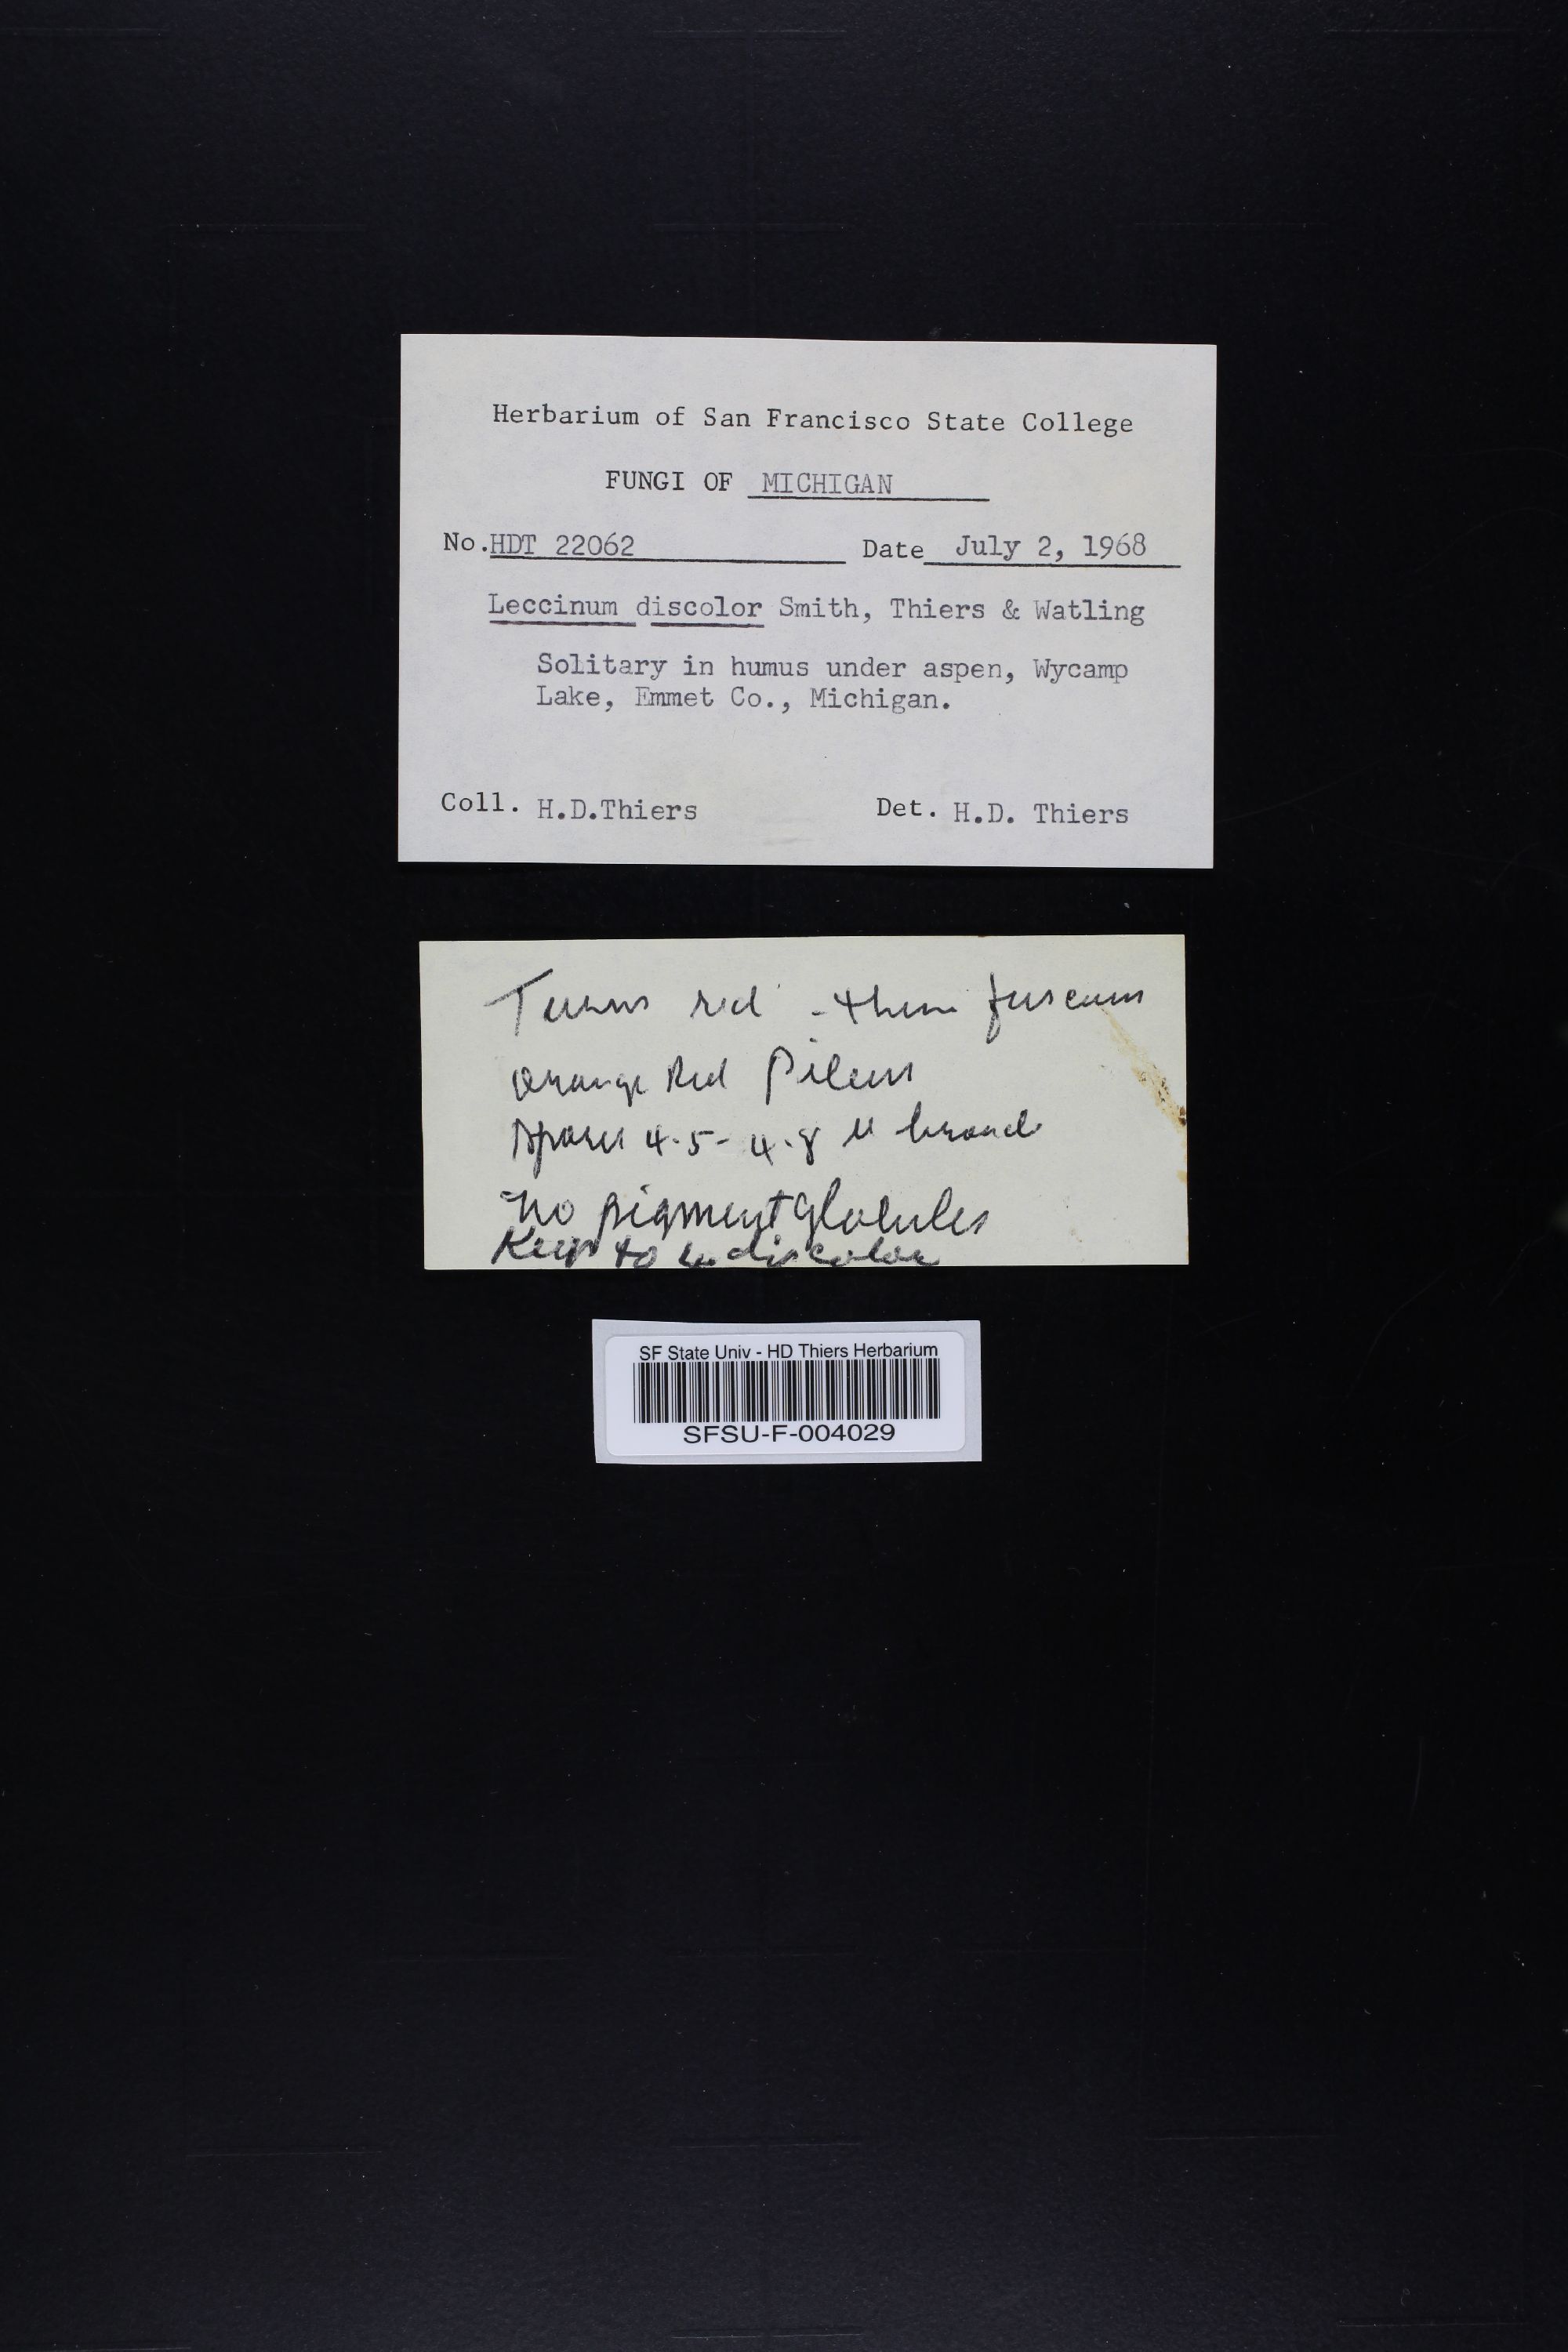 Herbarium of San Francisco State College
FUNGI OF MICHIGAN
No. HDT 22062 Date July 2, 1968
Leccinum discolor Smith, Thiers & Watling
Solitary in humus under aspen, Wycamp
Lake, Emmet Co., Michigan.
Coll. H.D.Thiers Det. H.D. Thiers
Turns red - then fuscous
Orange Red Pileus
Spores 4.5-4.8 µ broad
no pigment globules
Keys to L. discolor
SF State Univ - HD Thiers Herbarium
SFSU-F-004029